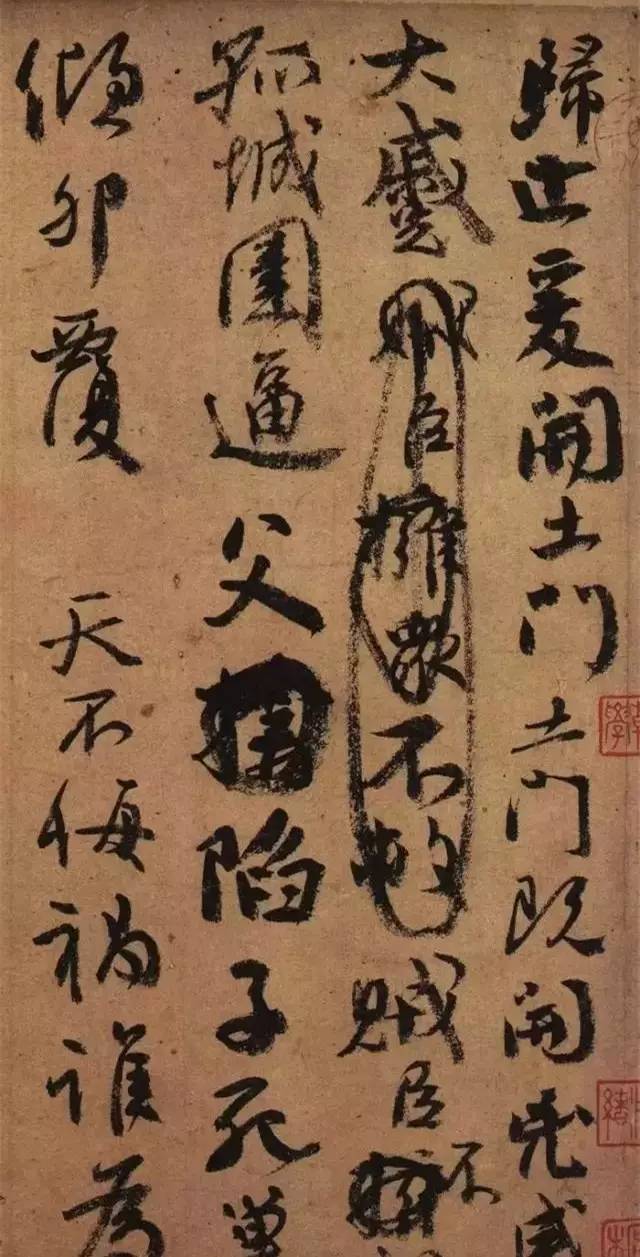 歸止爰開土門土門既開兇威
大蹙賊臣擁衆不救賊臣不
孤城圍逼父陷子死巢
傾卵覆 天不悔禍誰爲